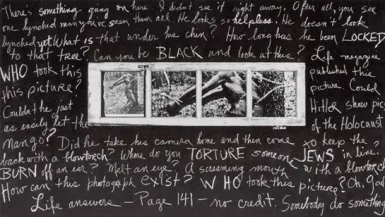 There's something going on here. I didn't see it right away. After all, you see
one lynched man you've seen them all. He looks so helpless. He doesn't look
lynched yet. What is that under his chin? How long has he been LOCKED
to that tree? Can you be BLACK and look at this? Life magazine
WHO took this published this
this picture? picture. Could
Couldn't he just Hitler show pics
as easily let the of the Holocaust
man go? Did he take his camera home and then come to keep the
back with a blowtorch? Where do you TORTURE someone JEWS in line?
BURN off an ear? Melt an eye? A screaming mouth with a blowtorch
How can this photograph exist? WHO took this picture? Oh, God
Life answers — Page 141 — no credit. Somebody do something